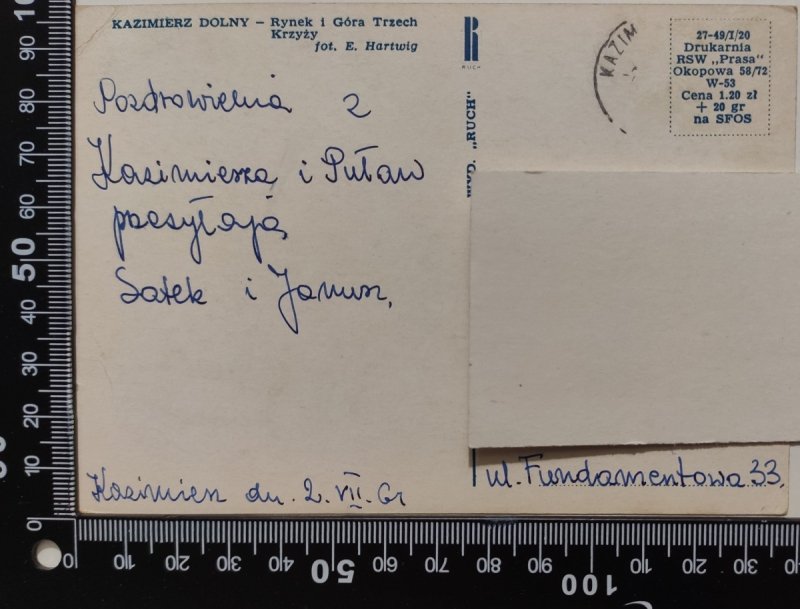 KAZIMIERZ DOLNY – Rynek i Góra Trzech
Krzyży
fot. E. Hartwig
RUCH
27-49/I/20
Drukarnia
RSW „Prasa"
Okopowa 58/72
W-53
Cena 1.20 zł
+ 20 gr
na SFOS
KAZIM
"RUCH"
Pozdrowienia z
Kazimierza i Puław
przesyłają
Satek i Janusz,
Kazimierz dn. 2.VII.
ul. Fundamentowa 33.
0 10 20 30 40 50 60 70 80 90 10
0 10 20 30 40 50 60 70 80 90 100 10 20 30 40